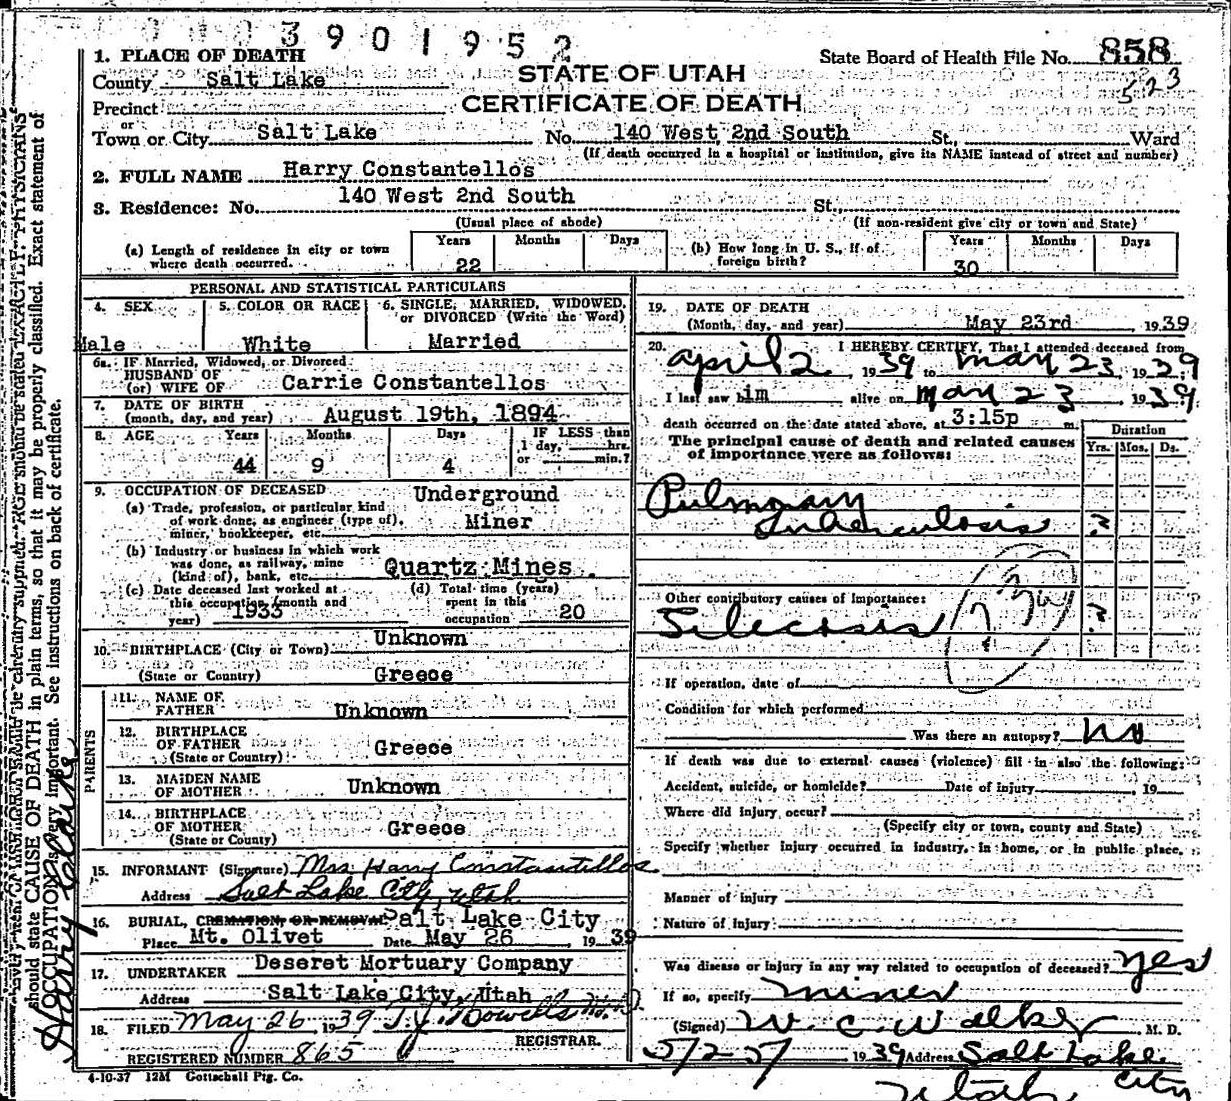 3901952
1. PLACE OF DEATH
State Board of Health File No. 858
County Salt Lake
STATE OF UTAH
523
Precinct
CERTIFICATE OF DEATH
or
Town or City Salt Lake No. 140 West 2nd South St., Ward
(If death occurred in a hospital or institution, give its NAME instead of street and number)
2. FULL NAME Harry Constantellos
3. Residence: No. 140 West 2nd South St.,
(Usual place of abode) (If non-resident give city or town and State)
(a) Length of residence in city or town where death occurred. Years 22 Months Days
(b) How long in U. S., if of foreign birth? Years 30 Months Days
PERSONAL AND STATISTICAL PARTICULARS
4. SEX Male
5. COLOR OR RACE White
6. SINGLE, MARRIED, WIDOWED, or DIVORCED (Write the Word) Married
6a. IF Married, Widowed, or Divorced
HUSBAND OF
(or) WIFE OF Carrie Constantellos
7. DATE OF BIRTH
(month, day, and year) August 19th, 1894
8. AGE Years 44 Months 9 Days 4 IF LESS than 1 day, hrs. or min.?
9. OCCUPATION OF DECEASED
(a) Trade, profession, or particular kind of work done, as engineer (type of), miner, bookkeeper, etc. Underground Miner
(b) Industry or business in which work was done, as railway, mine (kind of), bank, etc. Quartz Mines.
(c) Date deceased last worked at this occupation (month and year) 1933
(d) Total time (years) spent in this occupation 20
10. BIRTHPLACE (City or Town) Unknown
(State or Country) Greece
PARENTS
11. NAME OF FATHER Unknown
12. BIRTHPLACE OF FATHER (State or Country) Greece
13. MAIDEN NAME OF MOTHER Unknown
14. BIRTHPLACE OF MOTHER (State or County) Greece
15. INFORMANT (Signature) Mrs Harry Constantellos.
Address Salt Lake City, Utah
16. BURIAL, CREMATION, OR REMOVAL Salt Lake City
Place Mt. Olivet Date May 26, 1939
17. UNDERTAKER Deseret Mortuary Company
Address Salt Lake City, Utah
18. FILED May 26 1939 T.J. Howells M.D.
REGISTRAR.
REGISTERED NUMBER 865
4-10-37 12M Gottschall Ptg. Co.
19. DATE OF DEATH
(Month, day, and year) May 23rd, 1939
20. I HEREBY CERTIFY, That I attended deceased from
April 2 1939 to May 23, 1939
I last saw him alive on May 23 1939
death occurred on the date stated above, at 3:15p m.
The principal cause of death and related causes of importance were as follows:
Duration
Yrs. Mos. Ds.
Pulmonary
Tuberculosis ?
Other contributory causes of importance:
Silecosis ?
If operation, date of
Condition for which performed
Was there an autopsy? No
If death was due to external causes (violence) fill in also the following:
Accident, suicide, or homicide? Date of injury, 19
Where did injury occur?
(Specify city or town, county and State)
Specify whether injury occurred in industry, in home, or in public place,
Manner of injury
Nature of injury:
Was disease or injury in any way related to occupation of deceased? Yes
If so, specify miner
(Signed) W. C. Walker, M. D.
5/25/ 1939 Address Salt Lake
Utah City
should state CAUSE OF DEATH in plain terms, so that it may be properly classified. Exact statement of
OCCUPATION is very important. See instructions on back of certificate.